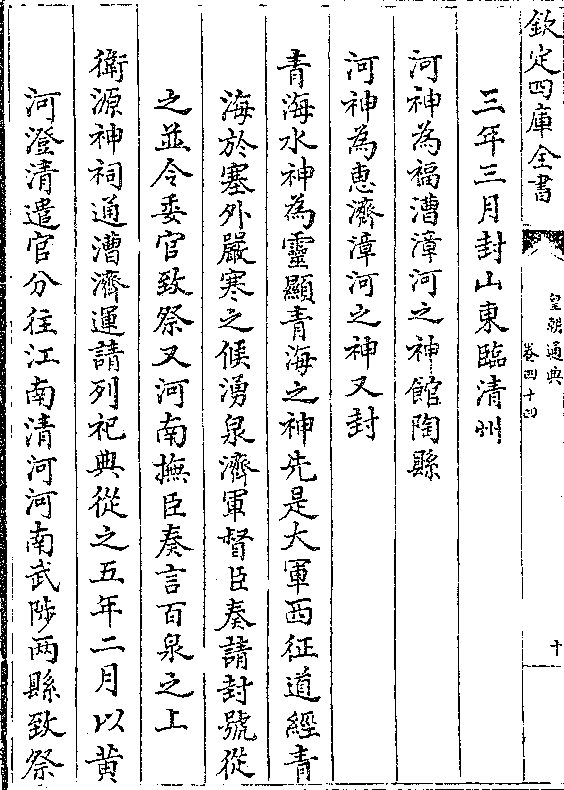 欽定四庫全書
皇朝通典
卷四十四
十
三年三月封山東臨清州
河神為福漕漳河之神館陶縣
河神為惠濟漳河之神又封
青海水神為靈顯青海之神先是大軍西征道經青
海於塞外嚴寒之候湧泉濟軍督臣奏請封號從
之並令委官致祭又河南撫臣奏言百泉之上
衛源神祠通漕濟運請列祀典從之五年二月以黄
河澄清遣官分往江南清河河南武陟兩縣致祭